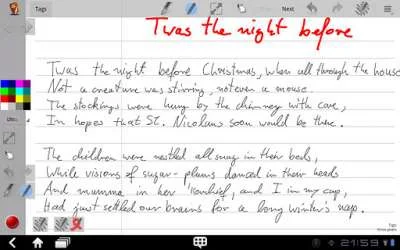 Tags
Twas the night before
Twas the night before Christmas, when all through the house
Not a creature was stirring, not even a mouse.
The stockings were hung by the chimney with care,
In hopes that St. Nicolaus soon would be there.
The children were nestled all snug in their beds,
While visions of sugar-plums danced in their heads
And mumma in her 'kerchief, and I in my cap,
Had just settled our brains for a long winter's nap.
Tags
21:59